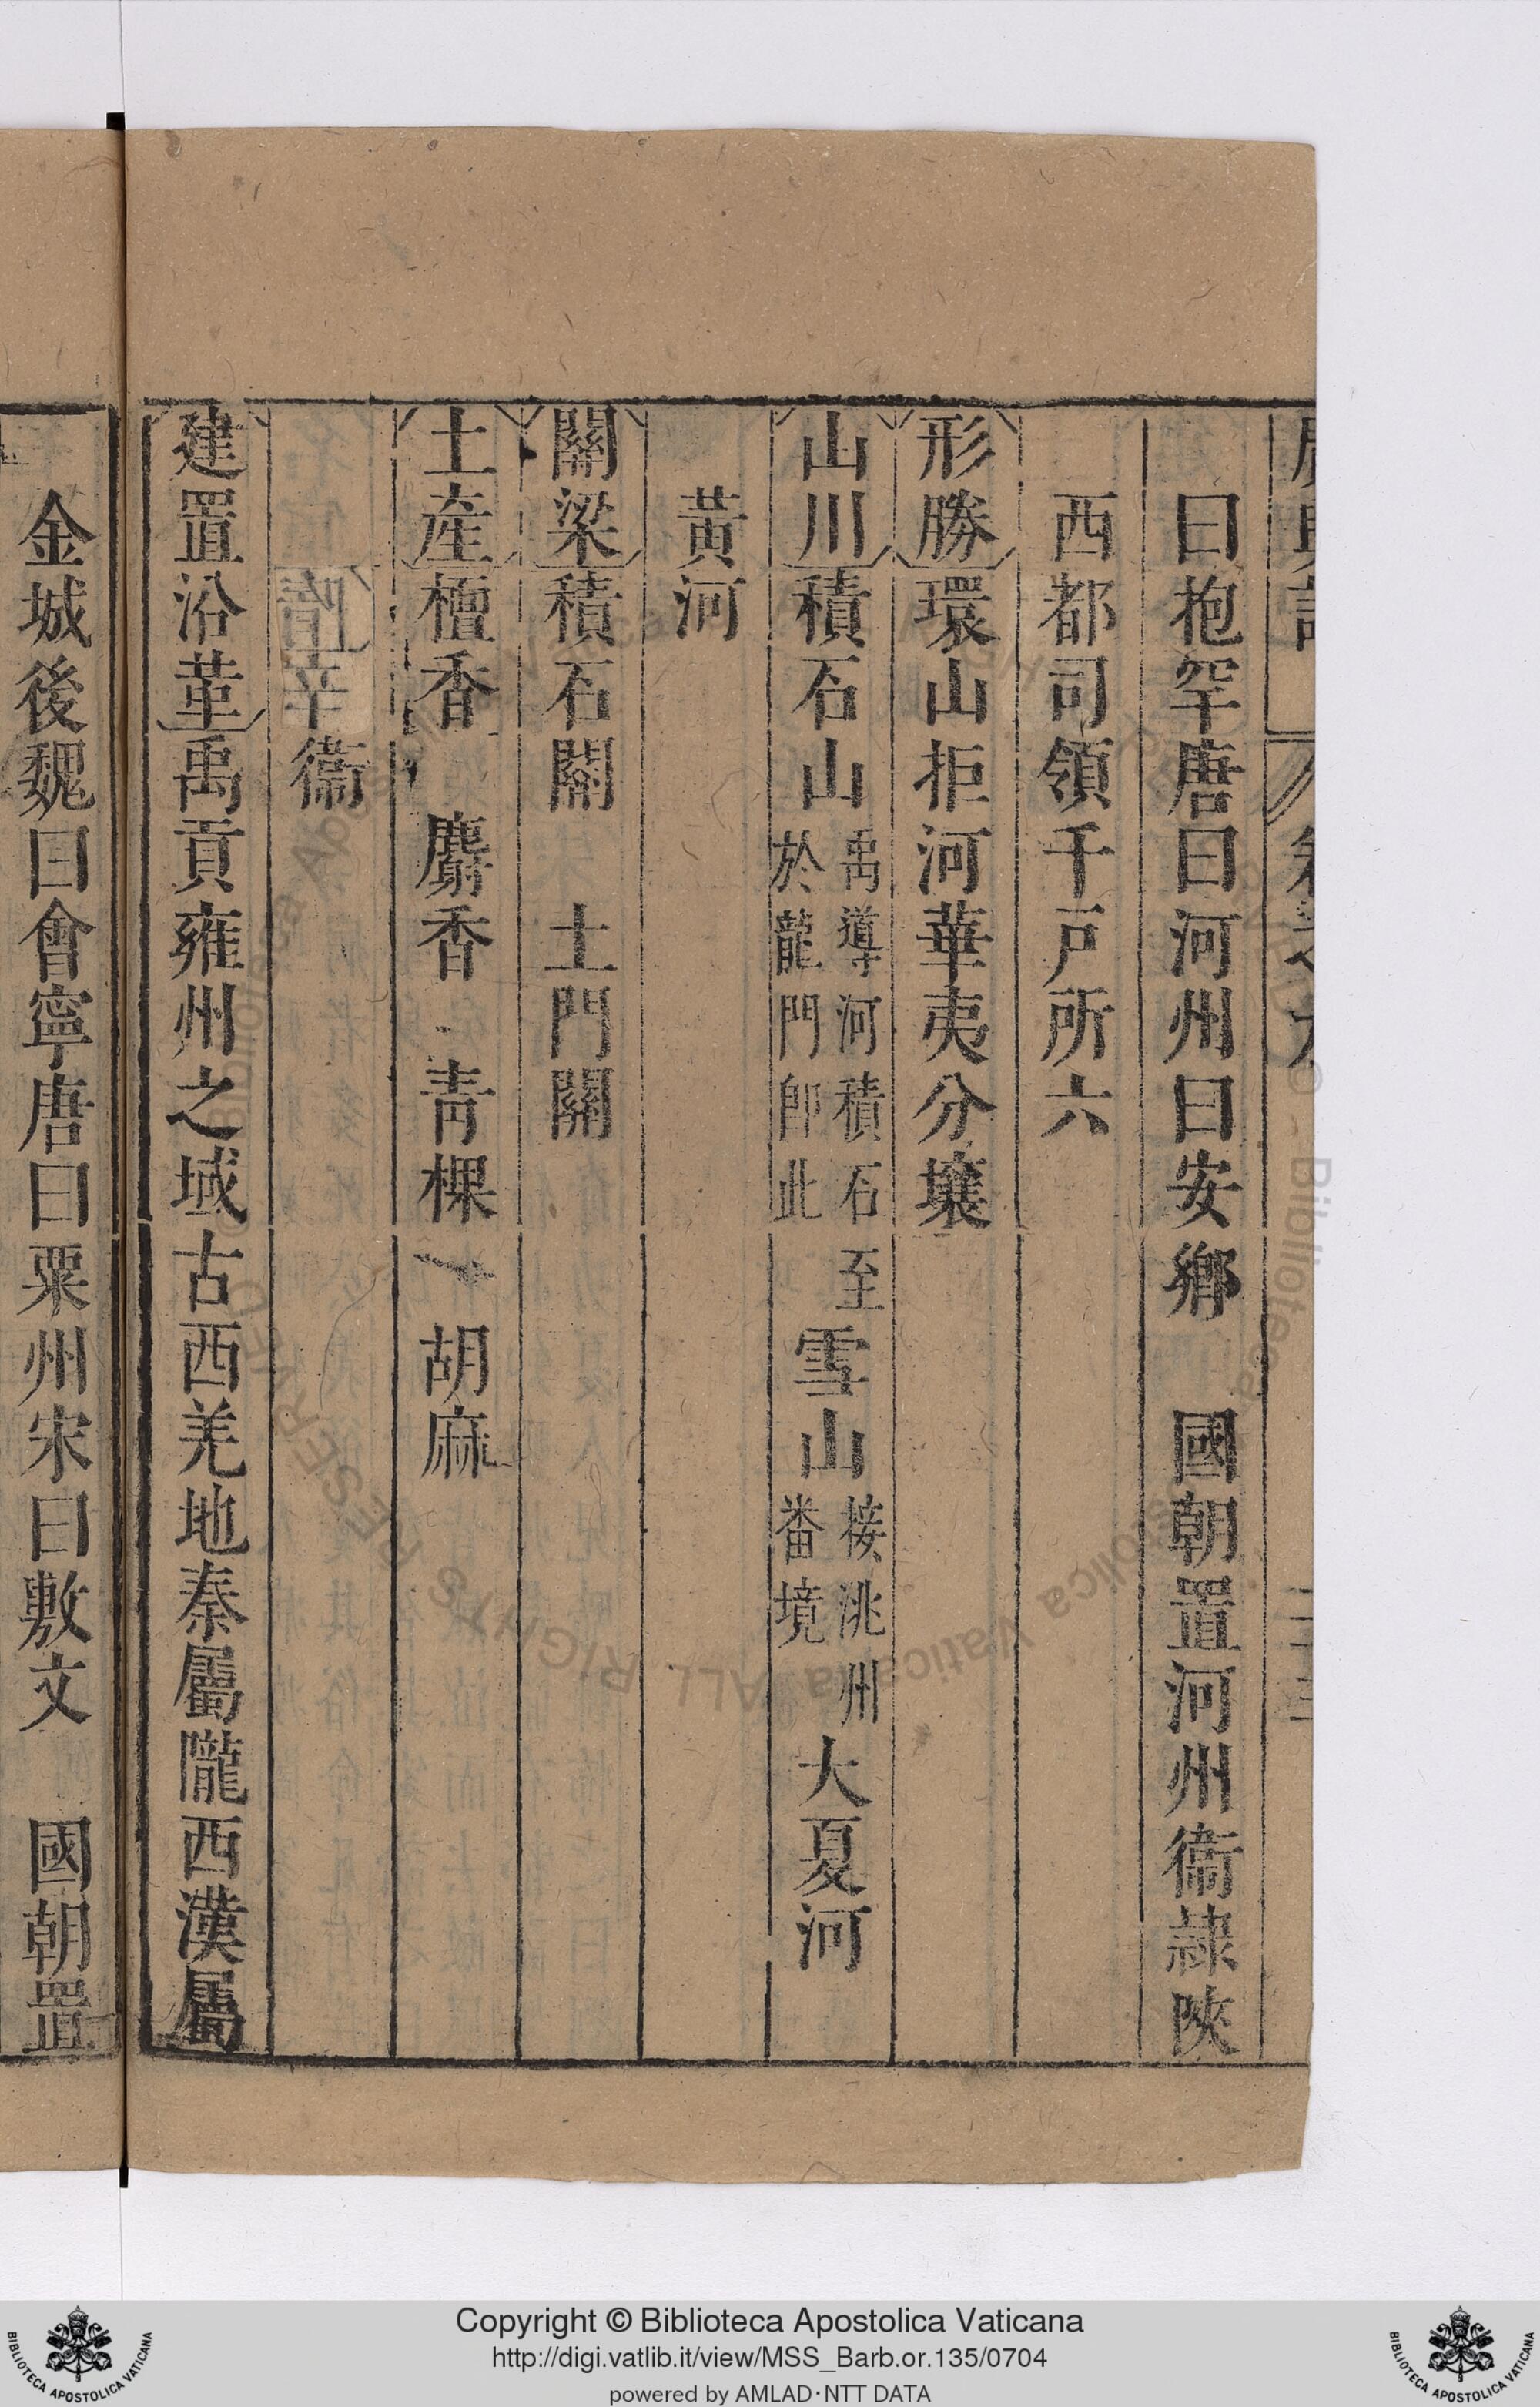 曰抱罕唐曰河州曰安鄉　國朝置河州衞隷陝
西都司領千戸所六
形勝環山拒河華夷分壤
山川積石山禹導河積石至於龍門卽此雪山接洮州畨境大夏河
黃河
關梁積石關　土門關
土產檀香　麝香　靑稞　胡麻
衞
建置沿革禹貢雍州之域古西羌地秦屬隴西漢屬
金城後魏曰會寧唐曰粟州宋曰敷文　國朝置
© - Biblioteca Apostolica Vaticana ALL RIGHTS RESERVED
Copyright © Biblioteca Apostolica Vaticana
http://digi.vatlib.it/view/MSS_Barb.or.135/0704
powered by AMLAD·NTT DATA
BIBLIOTECA APOSTOLICA VATICANA
BIBLIOTECA APOSTOLICA VATICANA